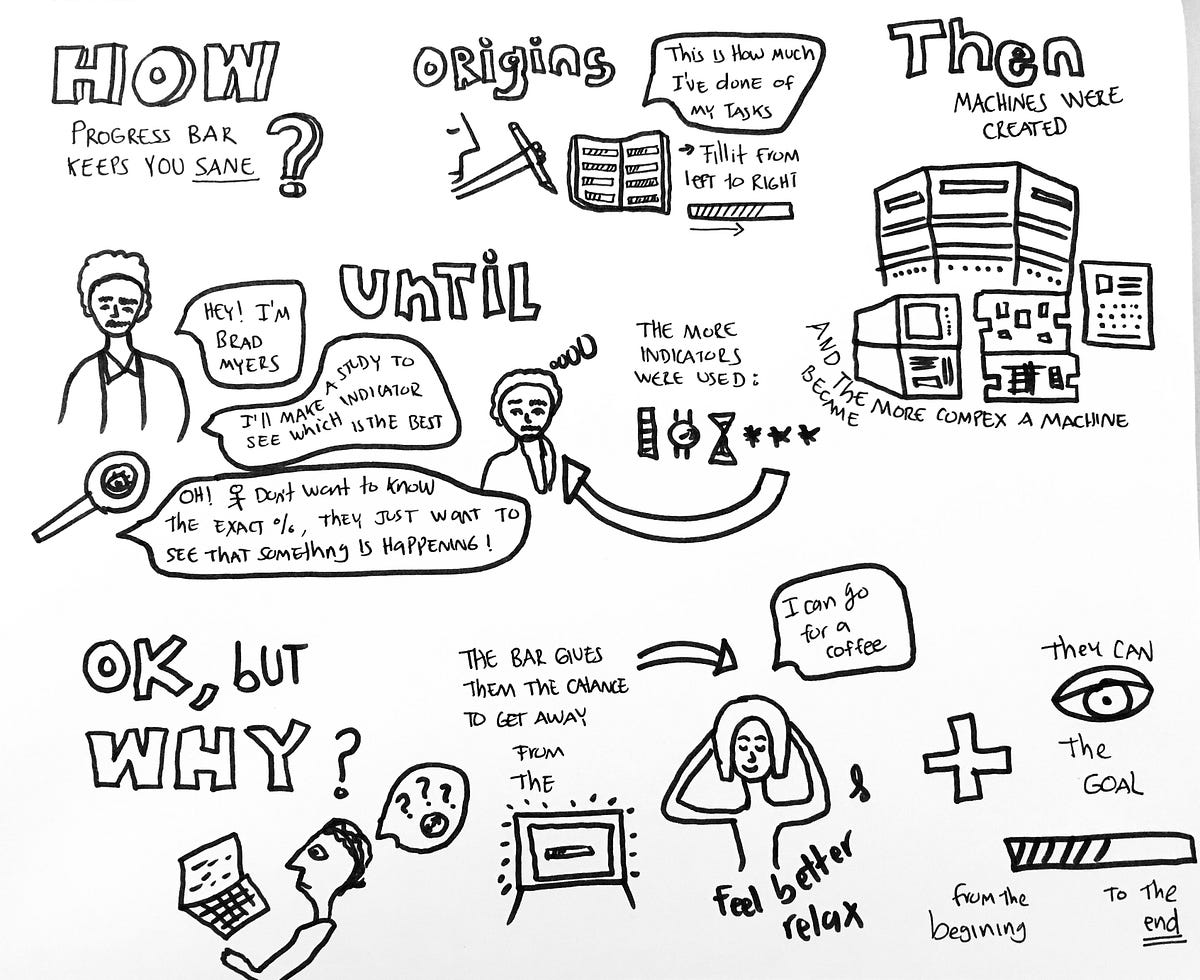 HOW
PROGRESS BAR
KEEPS YOU SANE
?
ORigins
This is How much
I've done of
my TASKS
→ Fill it from
left to RIGHT
Then
MACHINES WERE
CREATED
AND THE MORE COMPEX A MACHINE
BECAME
THE MORE
INDICATORS
WERE USED:
***
UnTiL
HEY! I'M
BRAD
MYERS
I'LL MAKE A STUDY TO
SEE which INDICATOR
IS THE BEST
OH! Dont want to know
THE EXACT %, THEY JUST WANT TO
SEE THAT SOMEthng IS HAPPENING!
OK, bUT
WHY?
? ? ?
THE BAR GIVES
THEM THE CHANCE
TO GET AWAY
FROM
THE
I can go
for a
coffee
&
feel better
relax
+
they CAN
The
GOAL
from the
begining
TO The
end